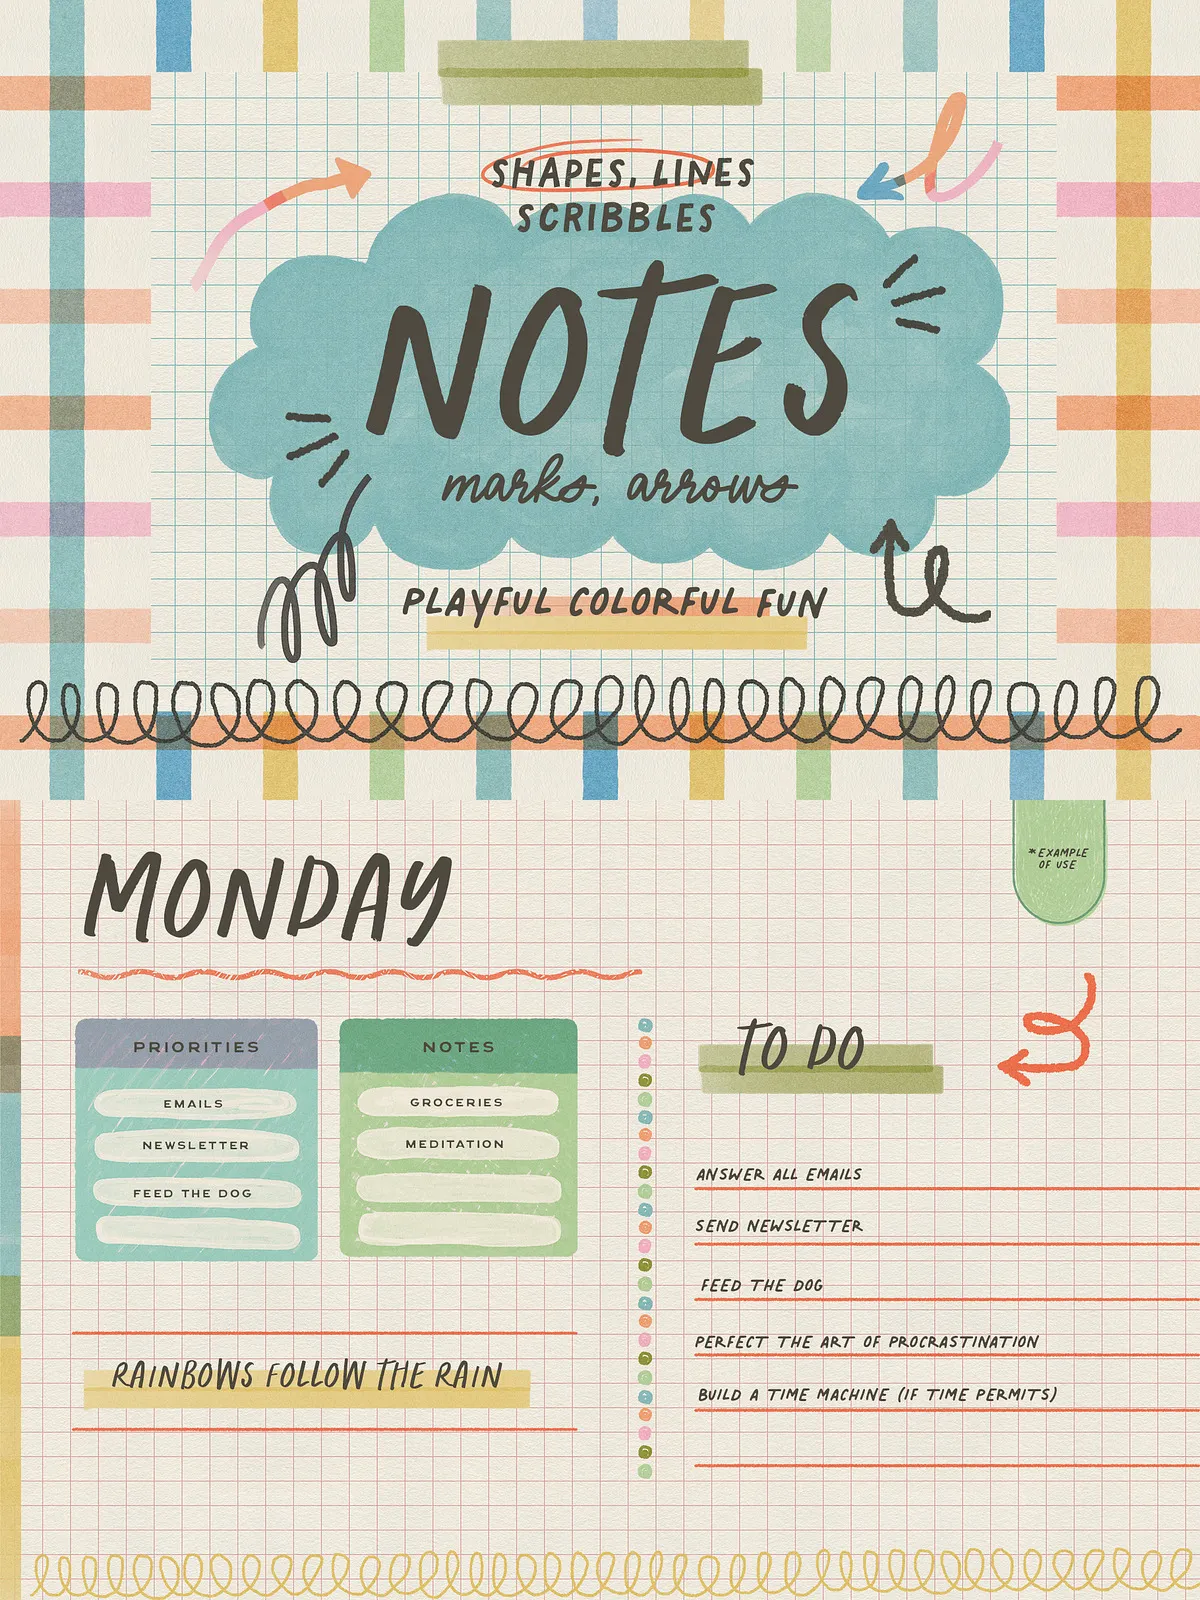 SHAPES, LINES
SCRIBBLES
NOTES
marks, arrows
PLAYFUL COLORFUL FUN
*EXAMPLE
OF USE
MONDAY
PRIORITIES
EMAILS
NEWSLETTER
FEED THE DOG
NOTES
GROCERIES
MEDITATION
RAINBOWS FOLLOW THE RAIN
TO DO
ANSWER ALL EMAILS
SEND NEWSLETTER
FEED THE DOG
PERFECT THE ART OF PROCRASTINATION
BUILD A TIME MACHINE (IF TIME PERMITS)